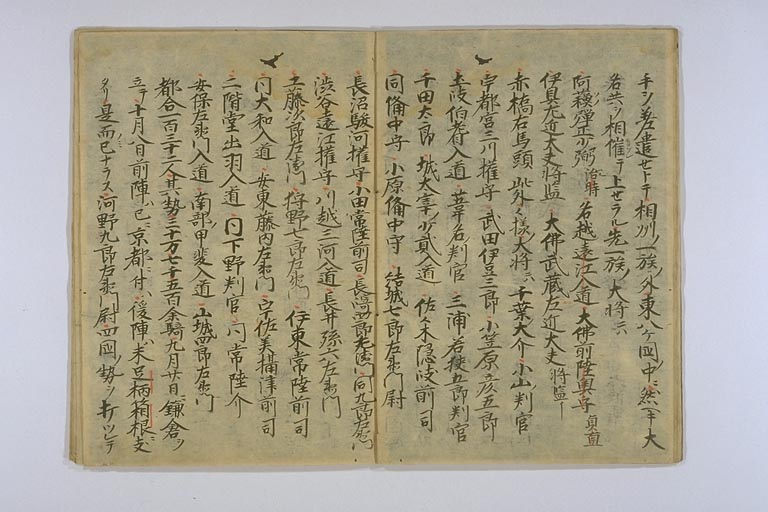 手ヲ差遣セトテ相州ノ一族ノ外東八ケ國中ニ然ヘキ大
名共ヲ相催テ上セラル先一族ノ大将ニハ
阿蘓弾正少弼治時 名越遠江入道 大佛前陸奥守貞直
伊具左近大夫将監 大佛武蔵左近大夫将監
赤橋右馬頭 此外ノ様大将ニハ千葉大介 小山判官
宇都宮三川權守 武田伊豆三郎 小笠原彦五郎
土岐伯耆入道 葦名判官 三浦若狭五郎判官
千田太郎 城太宰少貳入道 佐々木隠岐前司
同備中守 小原備中守 結城七郎左衛門尉
長沼駿河權守 小田常陸前司 長崎四郎左衛門 同九郎左衛門
渋谷遠江權守 川越三河入道 長井孫六左衛門
工藤次郎左衛門 狩野七郎左衛門 伊東常陸前司
同大和入道 安東藤内左衛門 宇佐美攝津前司
二階堂出羽入道 同下野判官 同常陸介
安保左衛門入道 南部甲斐入道 山城四郎左衛門
都合一百三十二人其勢三十万七千五百余騎九月廿日ニ鎌倉ヲ
立テ十月八日前陣ハ已ニ京都ニ付ハ後陣ハ未足柄箱根ニ支
タリ是而已ナラス河野九郎左衛門尉四國ノ勢ヲ打ツレテ